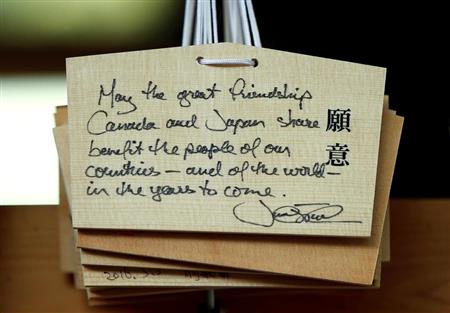 May the great friendship
Canada and Japan share
benefit the people of our
countries — and of the world —
in the years to come.
願意